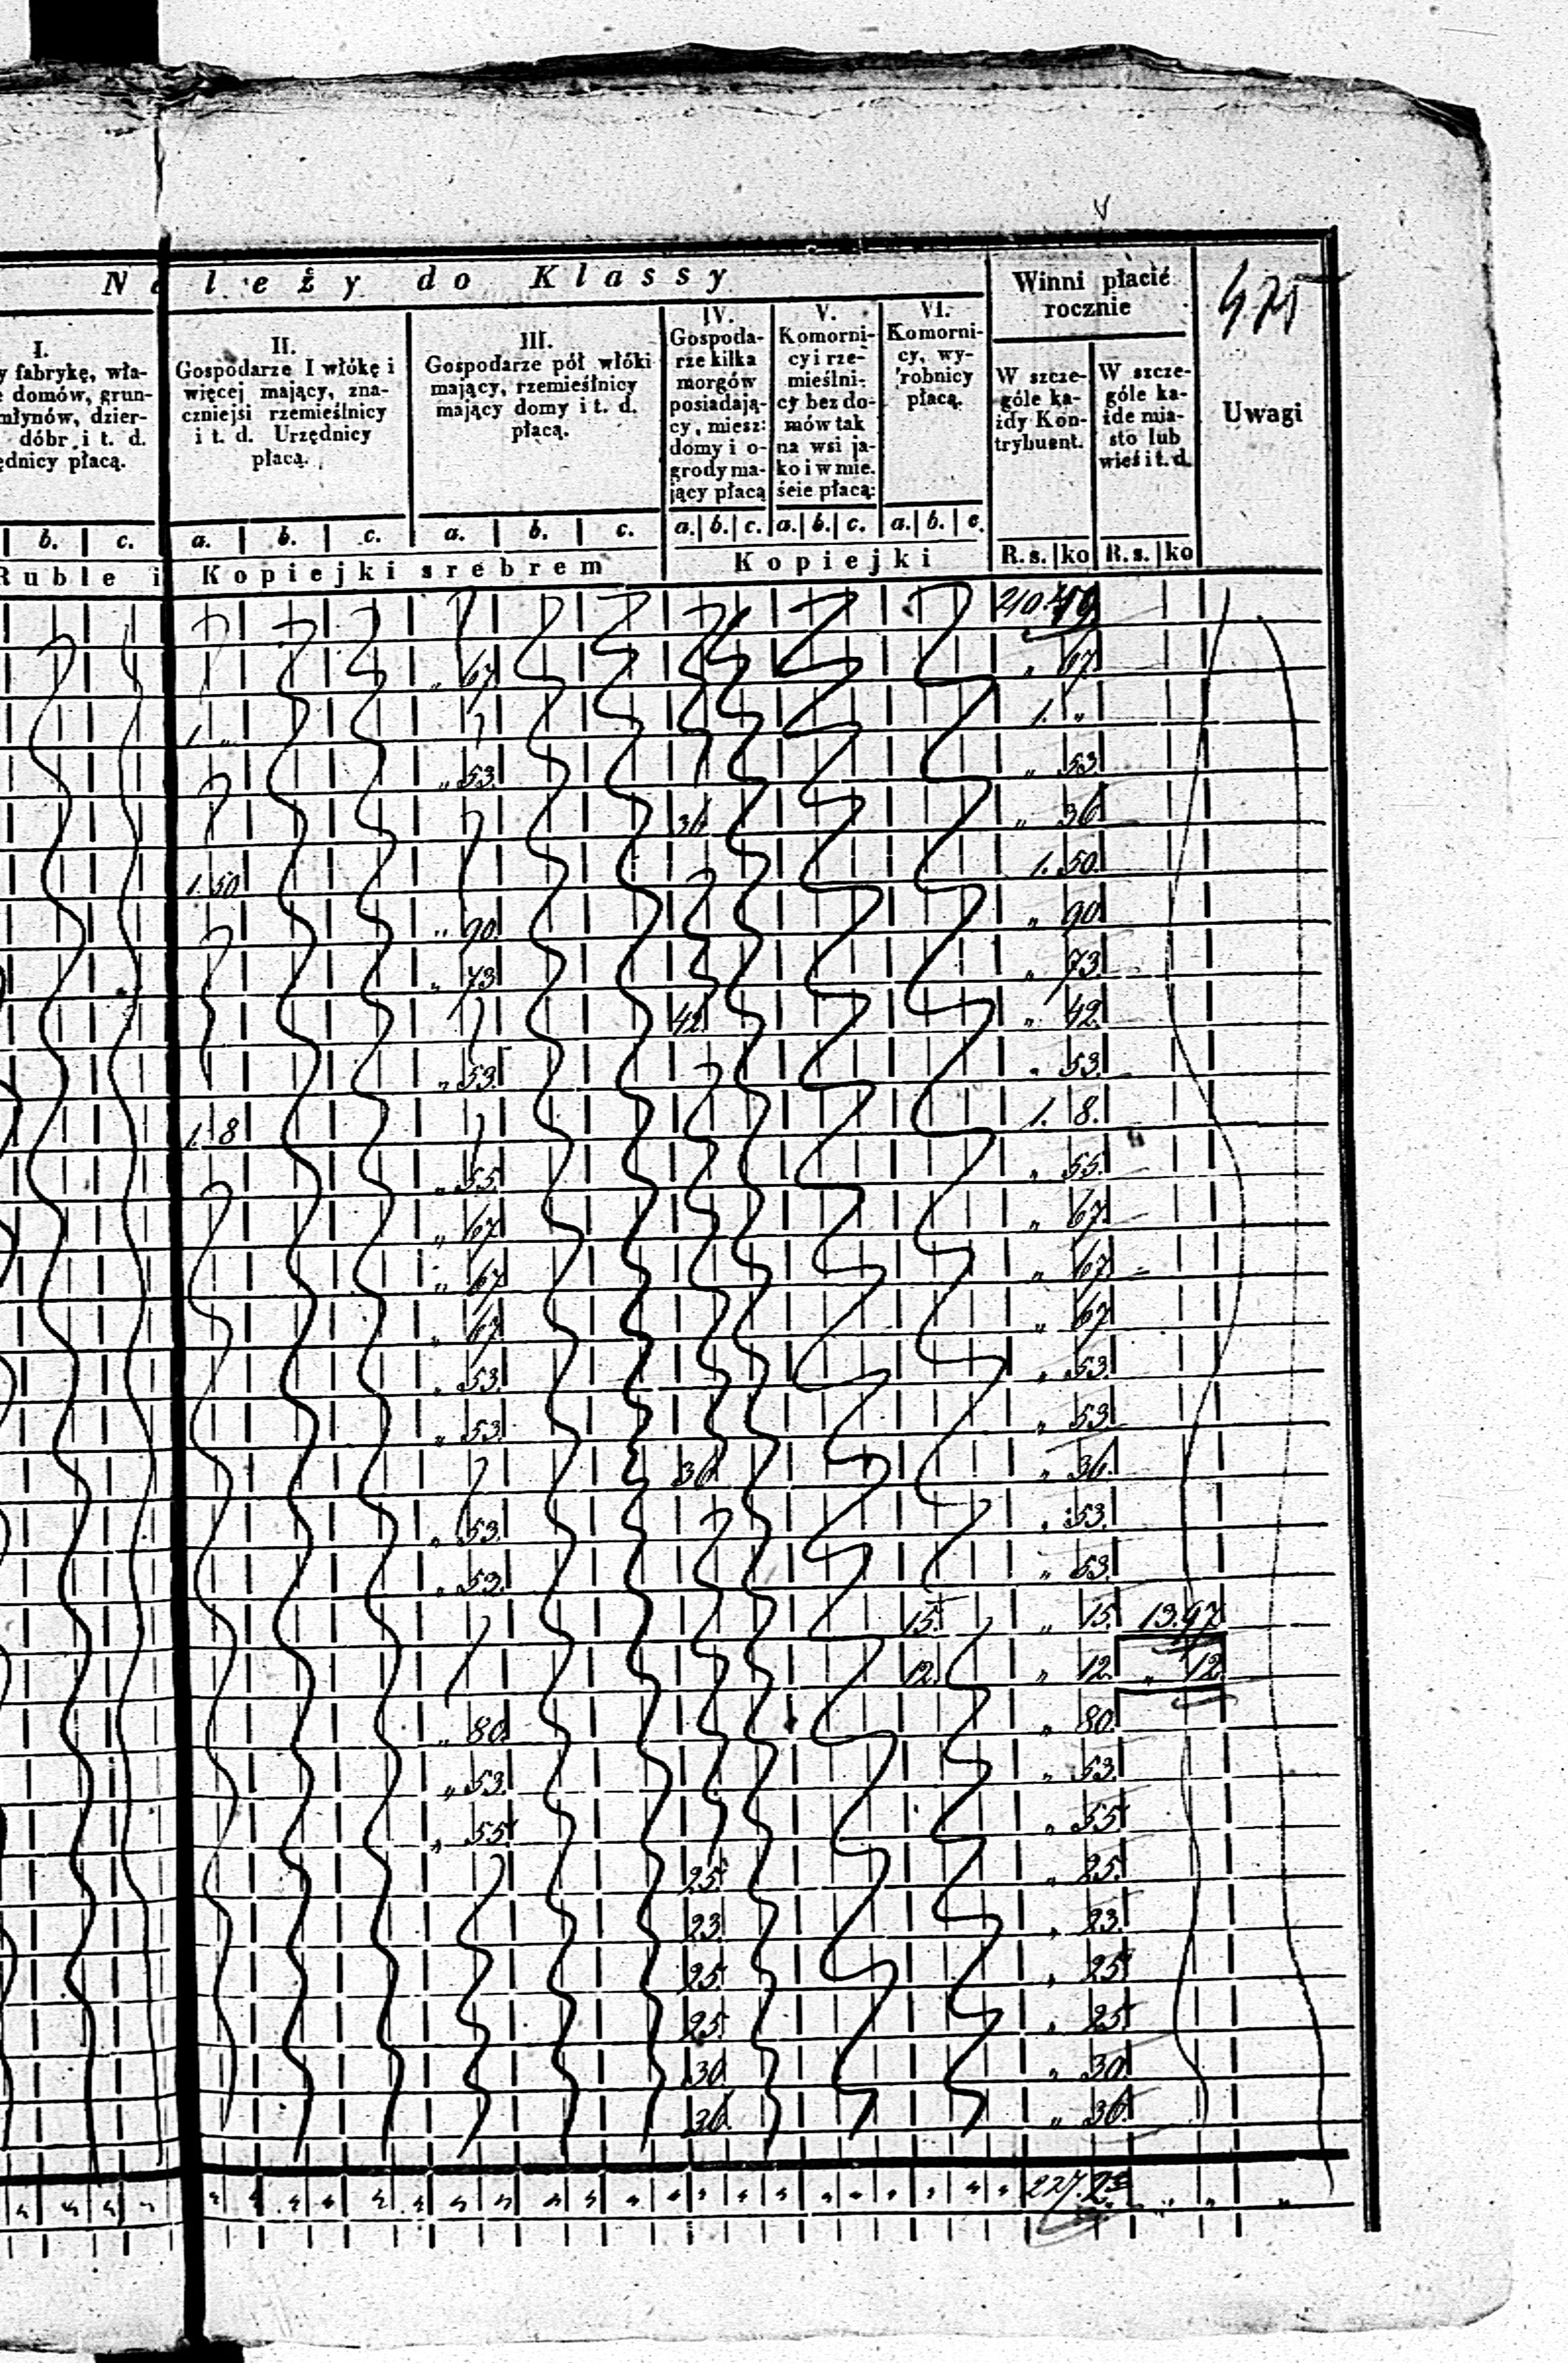 Należy do Klassy
Winni płacić
rocznie
I.
y fabrykę, wła-
e domów, grun-
młynów, dzier-
dóbr i t. d.
ędnicy płacą.
II.
Gospodarze I włókę i
więcej mający, zna-
czniejsi rzemieślnicy
i t. d. Urzędnicy
płacą.
III.
Gospodarze pół włóki
mający, rzemieślnicy
mający domy i t. d.
płacą.
IV.
Gospoda-
rze kilka
morgów
posiadają-
cy, miesz:
domy i o-
grody ma-
jący płacą
V.
Komorni-
cy i rze-
mieślni-
cy bez do-
mów tak
na wsi ja-
ko i w mie-
ście płacą:
VI.
Komorni-
cy, wy-
robnicy
płacą.
W szcze-
góle ka-
żdy Kon-
trybuent.
W szcze-
góle ka-
żde mia-
sto lub
wieś i t. d.
Uwagi
b. c. a. b. c. a. b. c. a. b. c. a. b. c. a. b. c.
Ruble i Kopiejki srebrem Kopiejki R.s. ko R.s. ko
210.
„ 67 „ 67
1. „ 1. „
„ 53. „ 53
36 „ 36
1.50 1.50.
„ 90 „ 90
„ 73 „ 73.
42 „ 42
„ 53 „ 53.
1.8 1. 8.
„ 55 „ 55
„ 67 „ 67
„ 67 „ 67
„ 67 „ 67
„ 53 „ 53
„ 53. „ 53
36 „ 36.
„ 53 „ 53.
„ 53 „ 53
15 „ 15 13.97
12. „ 12 „ 12
„ 80 „ 80
„ 53. „ 53
„ 55 „ 55
25 „ 25
23 „ 23.
25 „ 25
25 „ 25
30 „ 30
36. „ 36
227.